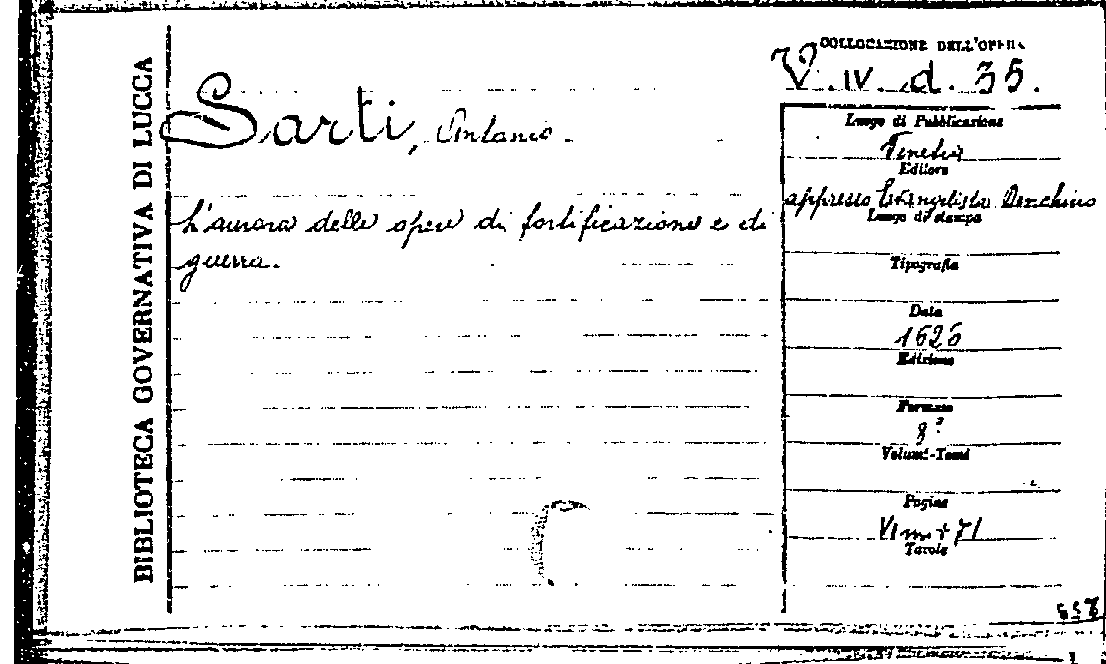 BIBLIOTECA GOVERNATIVA DI LUCCA
COLLOCAZIONE DELL'OPERA
V. IV. d. 35.
Sarti, Antonio.
L'aurora delle opere di fortificazione e di
guerra.
Luogo di Pubblicazione
Venetia
Editore
appresso Evangelista Deuchino
Luogo di stampa
Tipografia
Data
1626
Edizione
Formato
8º
Volumi-Tomi
Pagine
VI + 71
Tavole